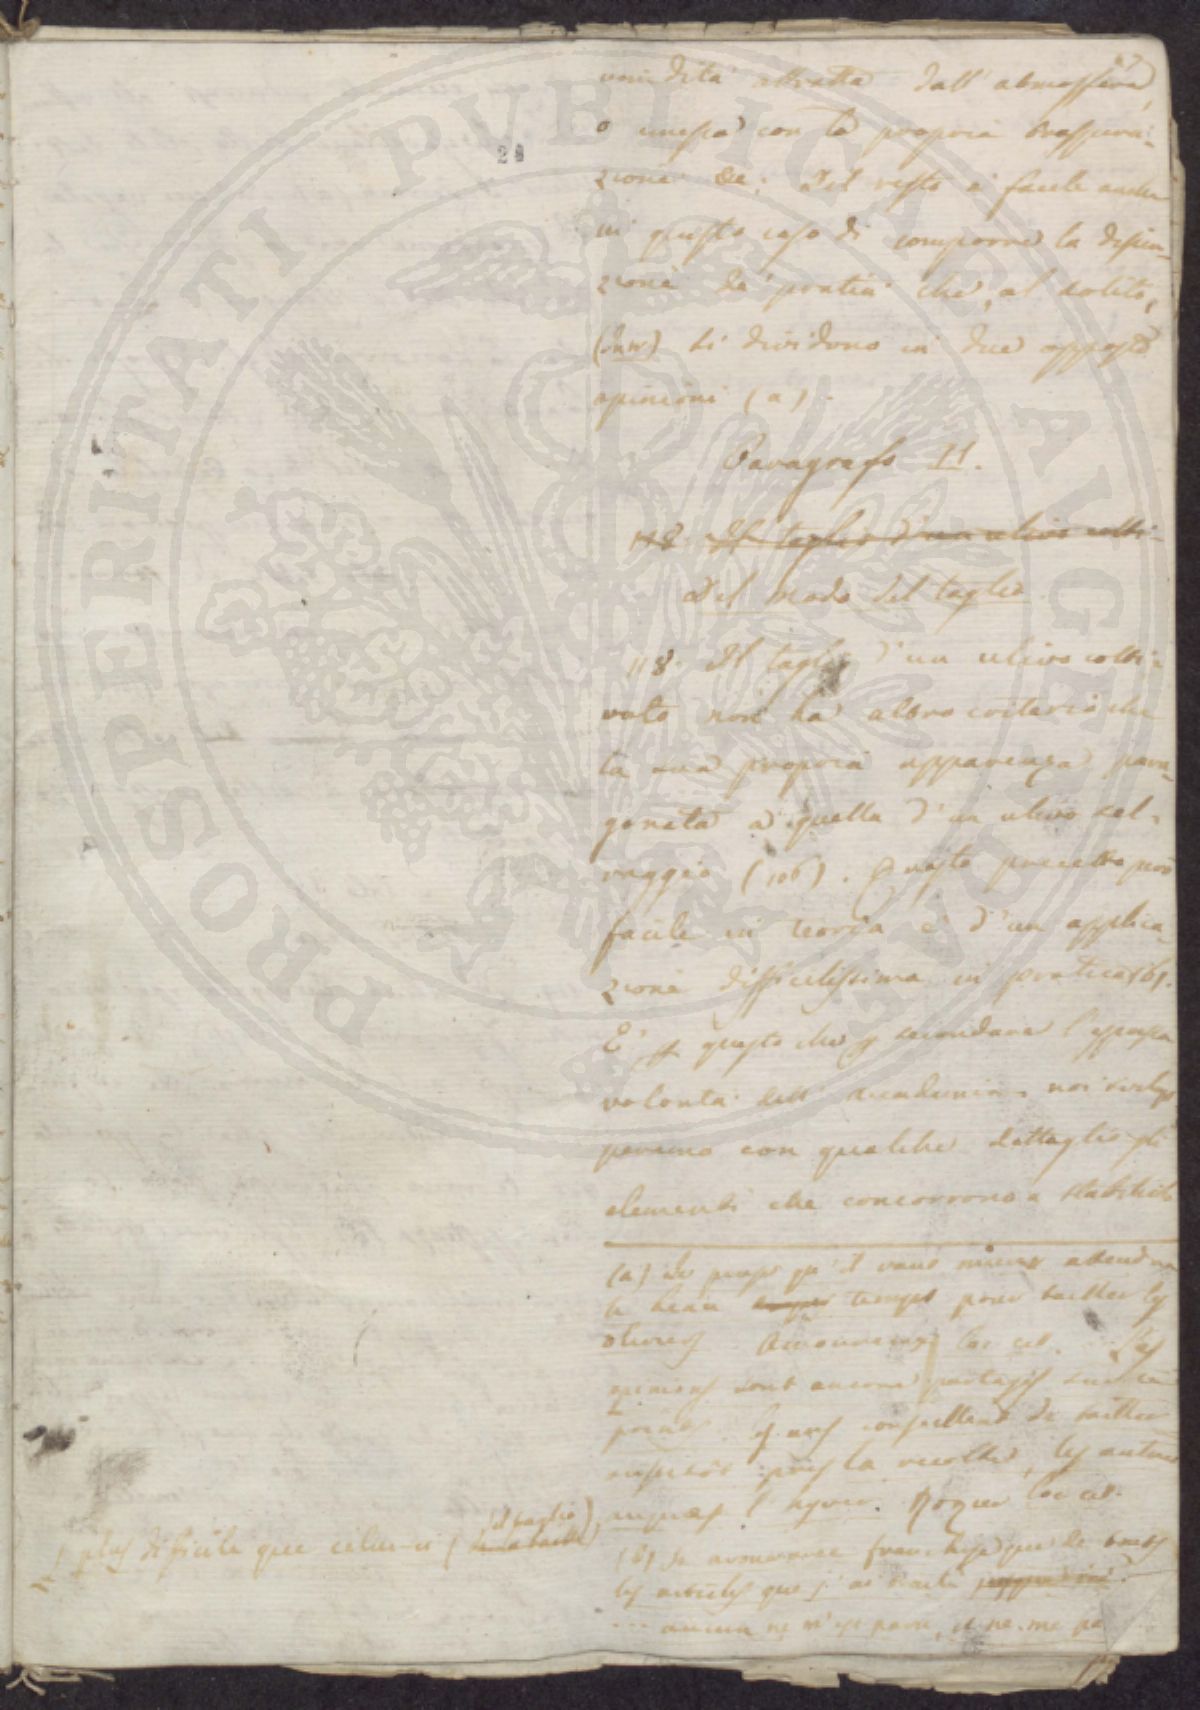 27
28
umidità attratta dall' atmosfera,
o umescà con la propria traspira-
zione &c: Del resto è facile anche
in questo caso di comporre la dissen-
zione de' pratici che, al solito,
si dividono in due opposte
opinioni (a).
Paragrafo II.
118. Il taglio d'un ulivo colti-
Del modo del taglio.
118. Il taglio d'un ulivo colti-
vato non ha altro criterio che
la sua propria apparenza para-
gonata a quella d'un ulivo sel-
vaggio (106). Questo precetto però
facile in teoria è d'un applica-
zione difficilissima in pratica (b).
E' p questo che p secondare l'espressa
volontà dell' Accademia, noi svilup-
peremo con qualche dettaglio gli
elementi che concorrono a stabilirlo
(a) Je pense qu'il vaut mieux attendre
le beau temps pour tailler les
oliviers. Amoureux loc cit. Les
opinions sont encore partagées sur ce
point. Les uns conseillent de tailler
aussitôt après la recolte, les autres
après l'hyver. Rozier loc cit.
(b) Je avouerai franchement que de tous
les articles que j'ai traité
aucun ne m'est paru, et ne me pa
plus difficile que celui-ci (il taglio)